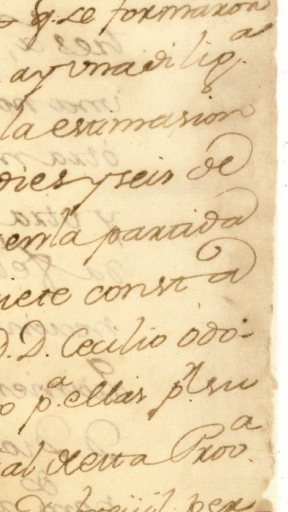 q.e se formaron
ay vna dilig.a
la estimasion
dies y seis de
en la partida
siete consta
D. D. Cecilio Odo-
p.a ellas p.r su
al desta Prov.a